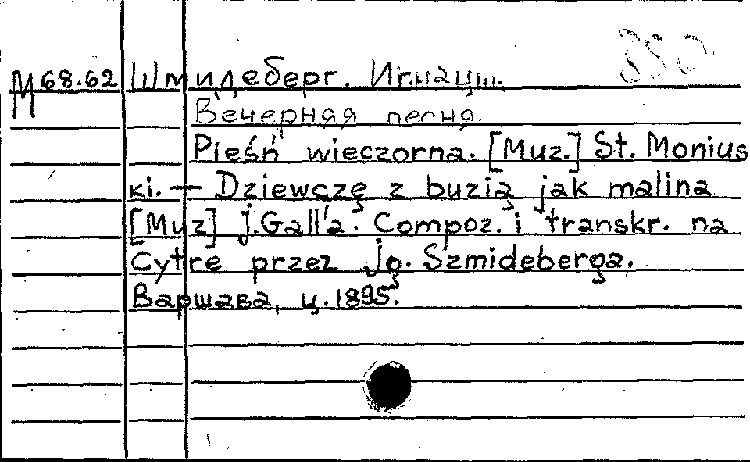 M 68.62 Шмидеберг. Игнацы.
Вечерняя песня.
Pieśń wieczorna. [Muz.] St. Monius
ki. — Dziewczę z buzią jak malina
[Muz] J. Gall'a. Compoz. i transkr. na
Cytrę przez Jg. Szmideberga.
Варшава, ц. 1895.